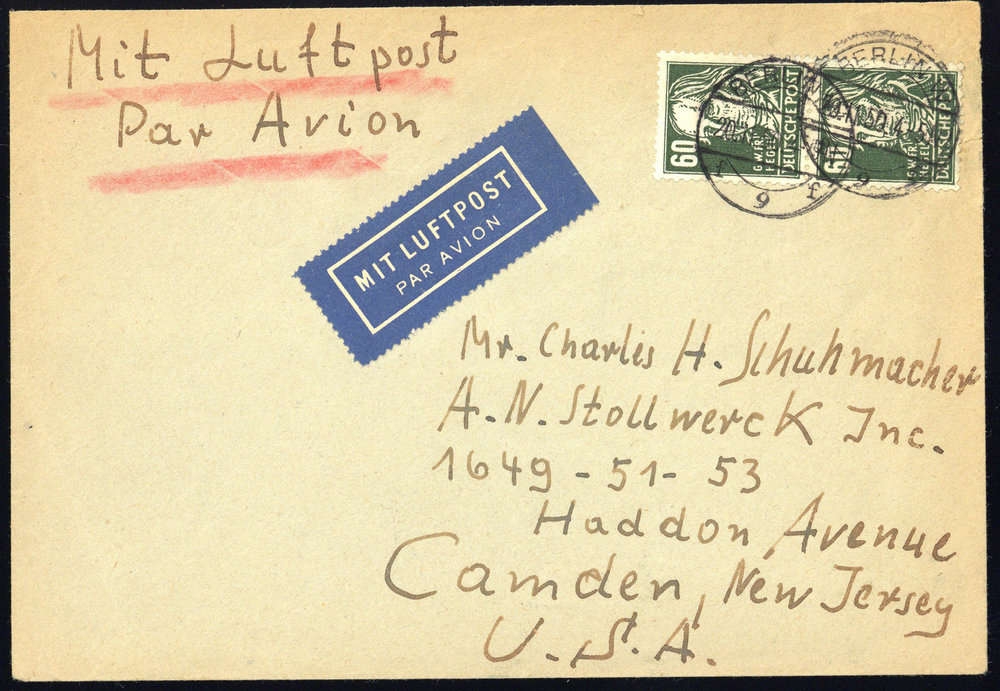 Mit Luftpost
Par Avion
MIT LUFTPOST
PAR AVION
60
DEUTSCHE POST
DEUTSCHE POST
BERLIN
BERLIN
9
f
9
Mr. Charles H. Schuhmacher
A.N. Stollwerck Inc.
1649-51-53
Haddon Avenue
Camden, New Jersey
U.S.A.